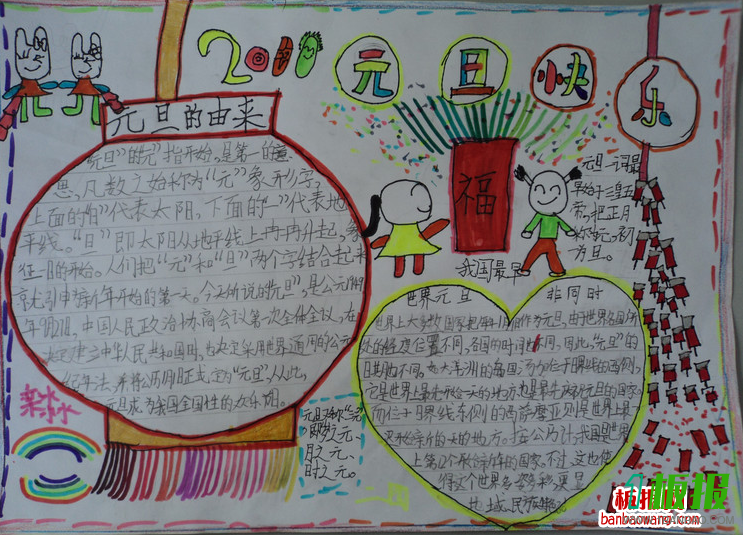 2011 元旦快乐
元旦的由来
"元旦"的"元"指开始,是第一的意
思,凡数之始称为"元"象形字,
上面的"日"代表太阳,下面的"一"代表地
平线。"旦"即太阳从地平线上冉冉升起,象
征一日的开始。人们把"元"和"旦"两个字结合起来
就引申为新年开始的第一天。今天所说的"元旦",是公元
中国人民政治协商会议第一次全体会议,在
决定建立中华人民共和国同,也决定采用世界通用的公元
纪年法,并将公历 正式定为"元旦",从此,
元旦成为我国全国性的欢乐
福
元旦一词最
早始于三皇五
帝,把正月
称为元,初
为旦。
我国最早
元旦又称"三元"
即岁之元、
月之元、
时之元。
世界元旦 非同时
世界上大多数国家把每年1月1日作为元旦,由于世界各国所
处的经度位置不同,各国的时间也不同,因此,"元旦"的
日期也不同,如大洋洲的 岛国汤加位于日界线的西侧,
它是世界上最先开始一天的地方也是最先 元旦的国家。
而位于日界线东侧的西萨摩亚则是世界上最
开始新的一天的地方。按公历计,我国是世界
上第12个 新年的国家。不过,这也使
得这个世界多姿多彩,更显
地域、民族
板报
banbaowang.com